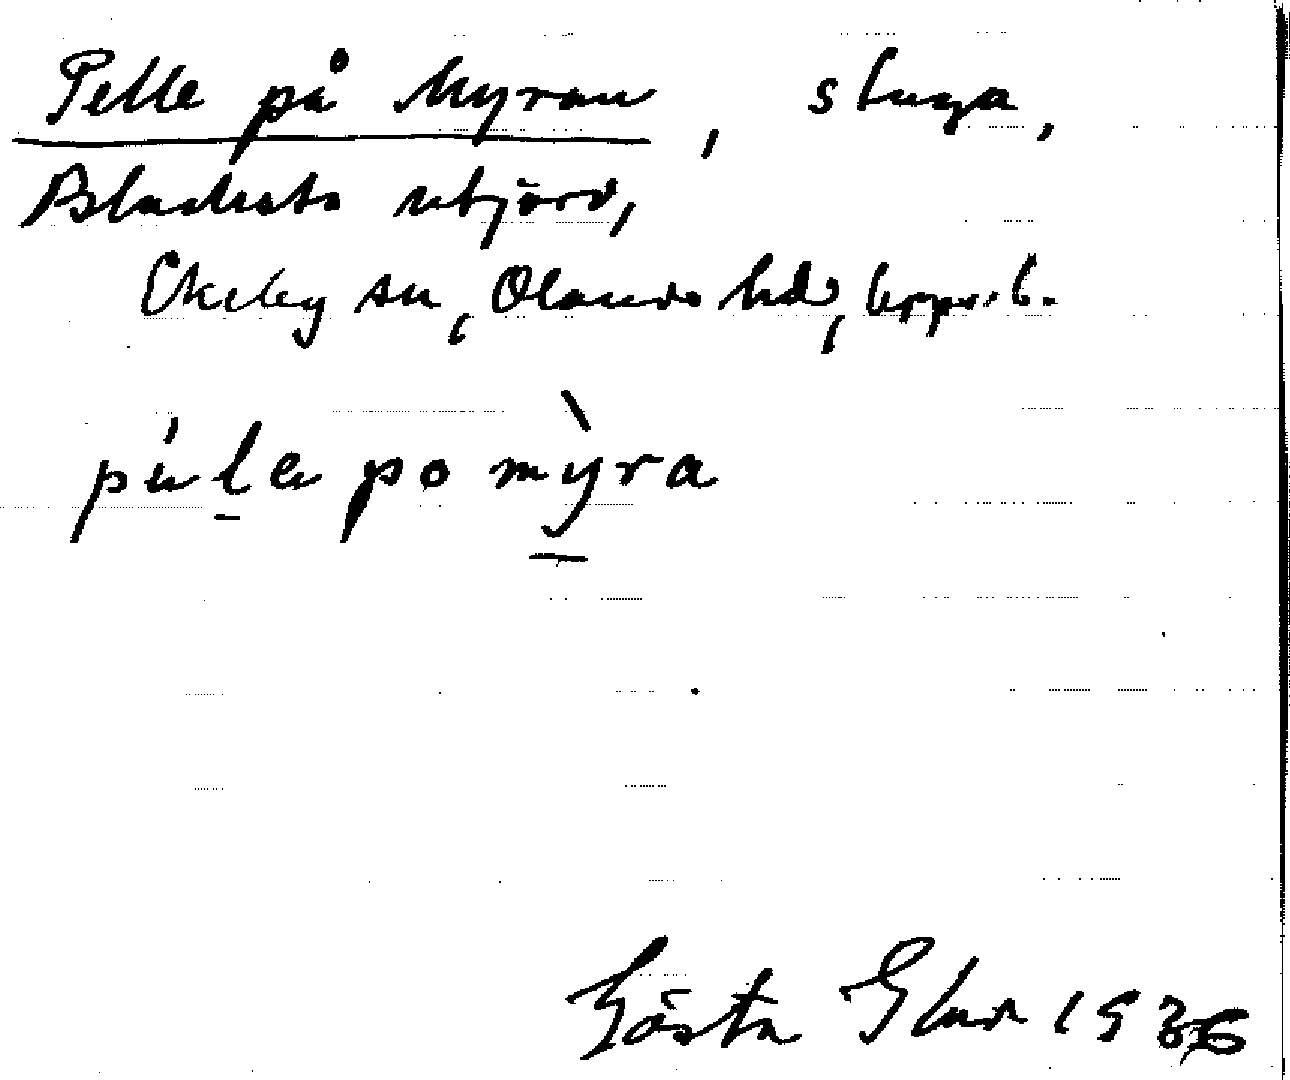 Pelle på Myran, stuga,
Blacksta utjord,
Ekeby sn, Olands hd, Upps. l.
päle po mỳra
Gösta 1936